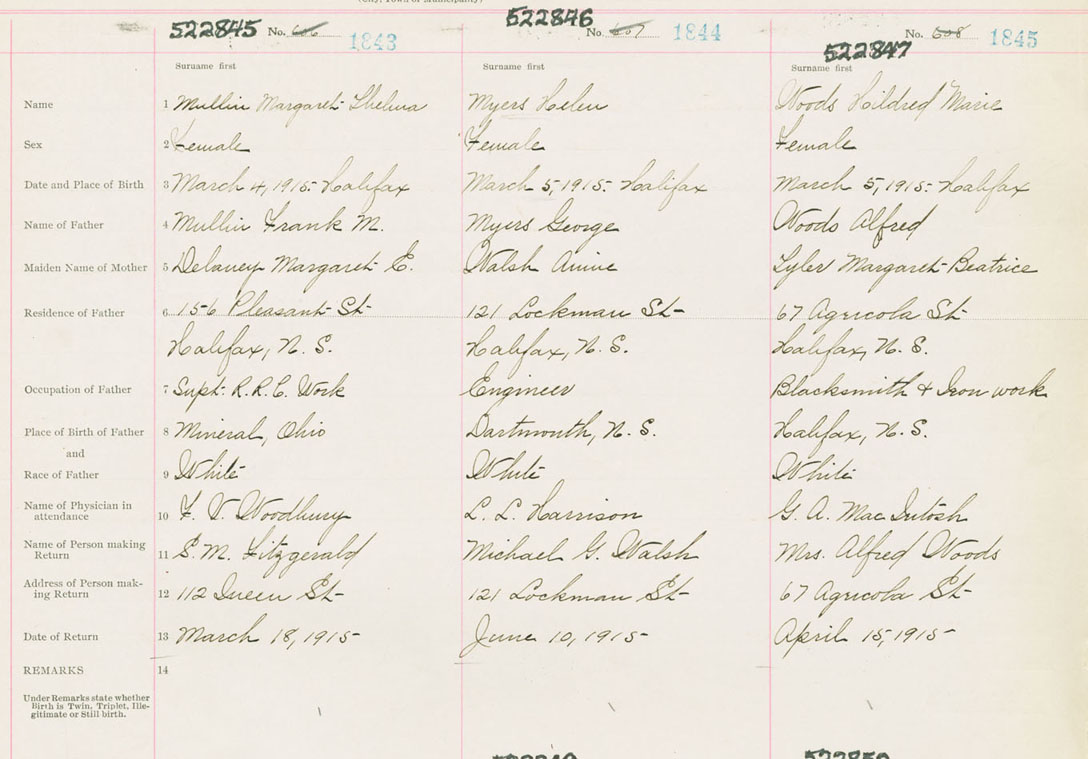 522845 No. 606 1843
522846 No. 607 1844
522847 No. 608 1845
Surname first Surname first Surname first
Name 1 Mullin Margaret Thelma Myers Helen Woods Hildred Marie
Sex 2 Female Female Female
Date and Place of Birth 3 March 4, 1915. Halifax March 5, 1915. Halifax March 5, 1915. Halifax
Name of Father 4 Mullin Frank M. Myers George Woods Alfred
Maiden Name of Mother 5 Delaney Margaret E. Walsh Annie Lyler Margaret Beatrice
Residence of Father 6 156 Pleasant St 121 Lockman St 67 Agricola St
Halifax, N. S. Halifax, N. S. Halifax, N. S.
Occupation of Father 7 Supt. R.R.C. Work Engineer Blacksmith & Iron work
Place of Birth of Father 8 Mineral, Ohio Dartmouth, N. S. Halifax, N. S.
and
Race of Father 9 White White White
Name of Physician in
attendance 10 F. V. Woodbury L. L. Harrison G. A. MacIntosh
Name of Person making
Return 11 S. M. Fitzgerald Michael G. Walsh Mrs. Alfred Woods
Address of Person mak-
ing Return 12 112 Queen St 121 Lockman St 67 Agricola St
Date of Return 13 March 18, 1915 June 10, 1915 April 15, 1915
REMARKS 14
Under Remarks state whether
Birth is Twin, Triplet, Ille-
gitimate or Still birth.